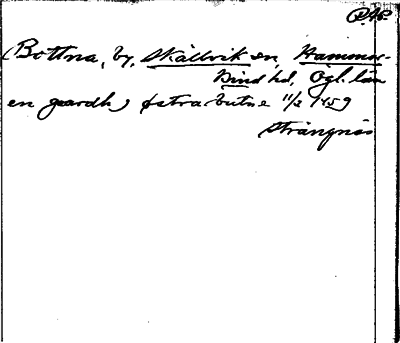 P.Ap.
Bottna, by, Skällvik sn, Hammar-
kind hd, Ögl. län
en gaardh j østra butne 11/2 1459
Strängnäs